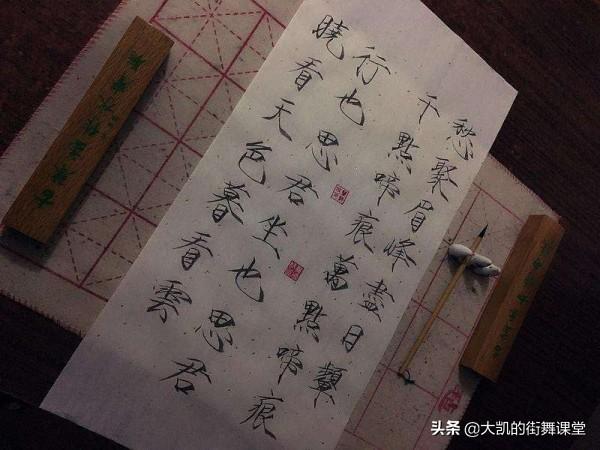 愁聚眉峰盡日顰
千點啼痕萬點啼痕
行也思君坐也思君
曉看天色暮看雲
头条 @大凯的街舞课堂